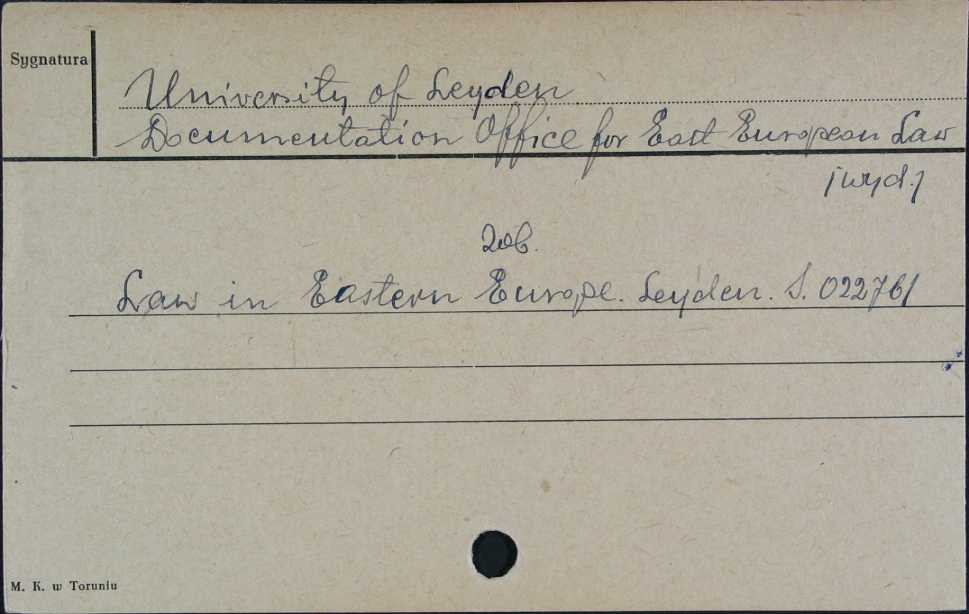 Sygnatura
University of Leyden
Documentation Office for East European Law
[wyd.]
Zob.
Law in Eastern Europe. Leyden. S. 022761
M. K. w Toruniu